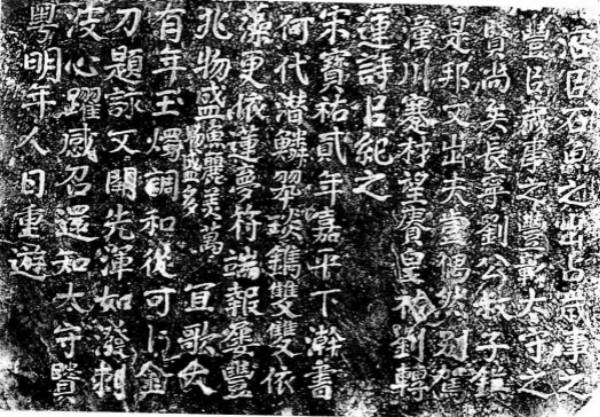 涪㠯石魚之出占歲事之
豐㠯歲事之豐彰太守之
賢尚矣長寧劉公叔子鎮
是邦又出夫豈偶然別駕
潼川蹇材望賡皇祐劉轉
運詩㠯紀之
宋寶祐貳年嘉平下澣書
何代潛鱗翠琰鐫雙雙依
藻更依蓮夢符端報屢豐
兆物盛魚麗美萬物盛多宜歌大
有年玉燭調和從可卜金
刀題詠又開先渾如潑剌
波心躍感召還知太守賢
粵明年人日重遊